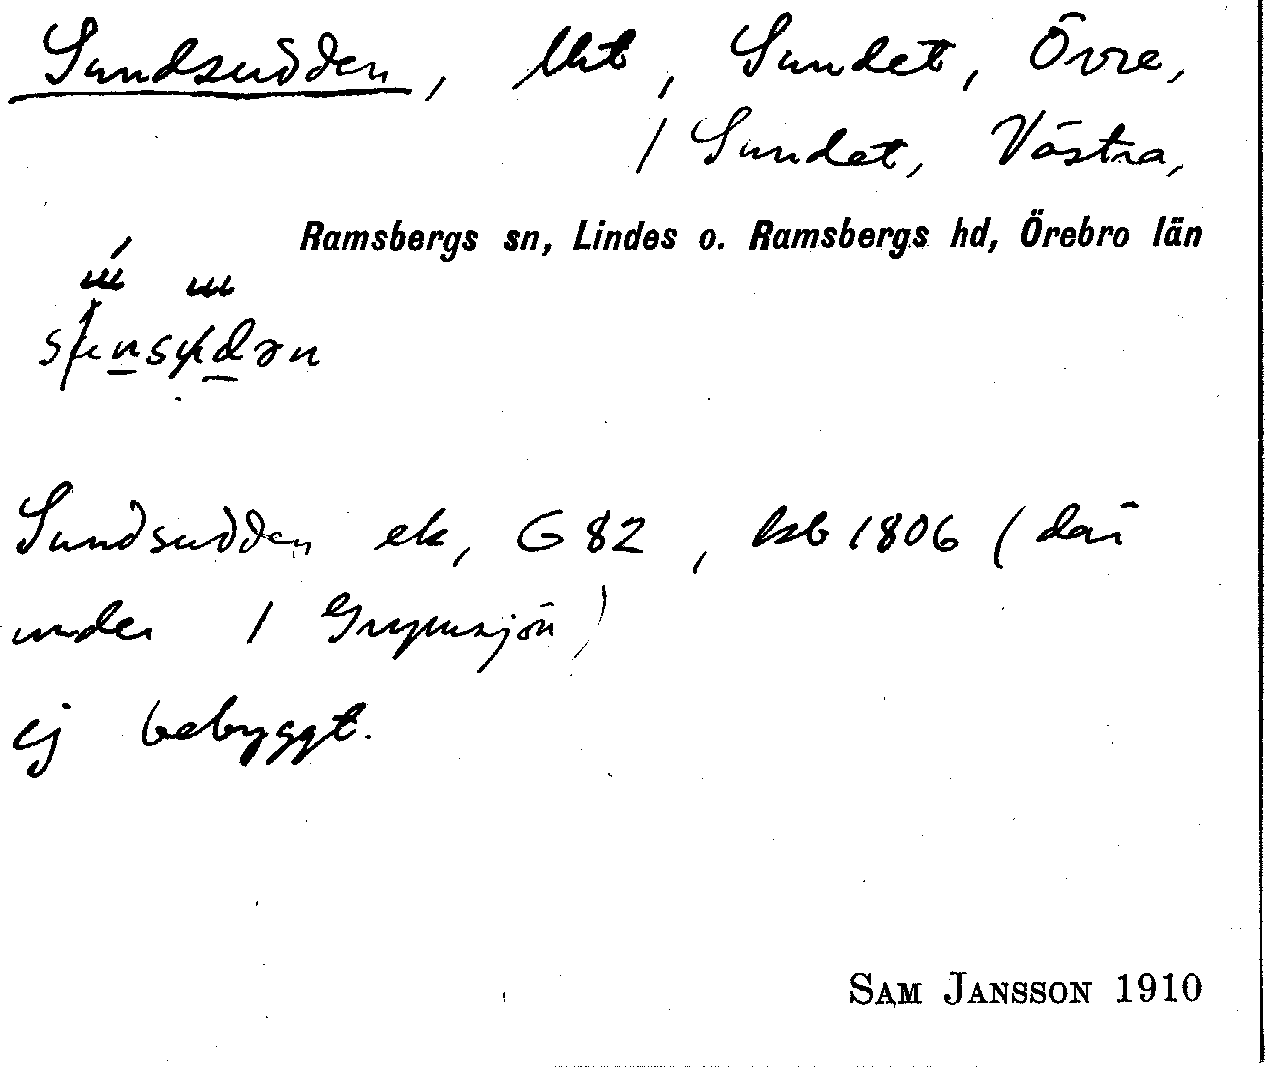 Sundsudden, lht, Sundet, Övre,
/ Sundet, Västra,
Ramsbergs sn, Lindes o. Ramsbergs hd, Örebro län
Sundsudden ek, G 82, hsb 1806 (där
under / Grymsjön)
ej bebyggt.
SAM JANSSON 1910